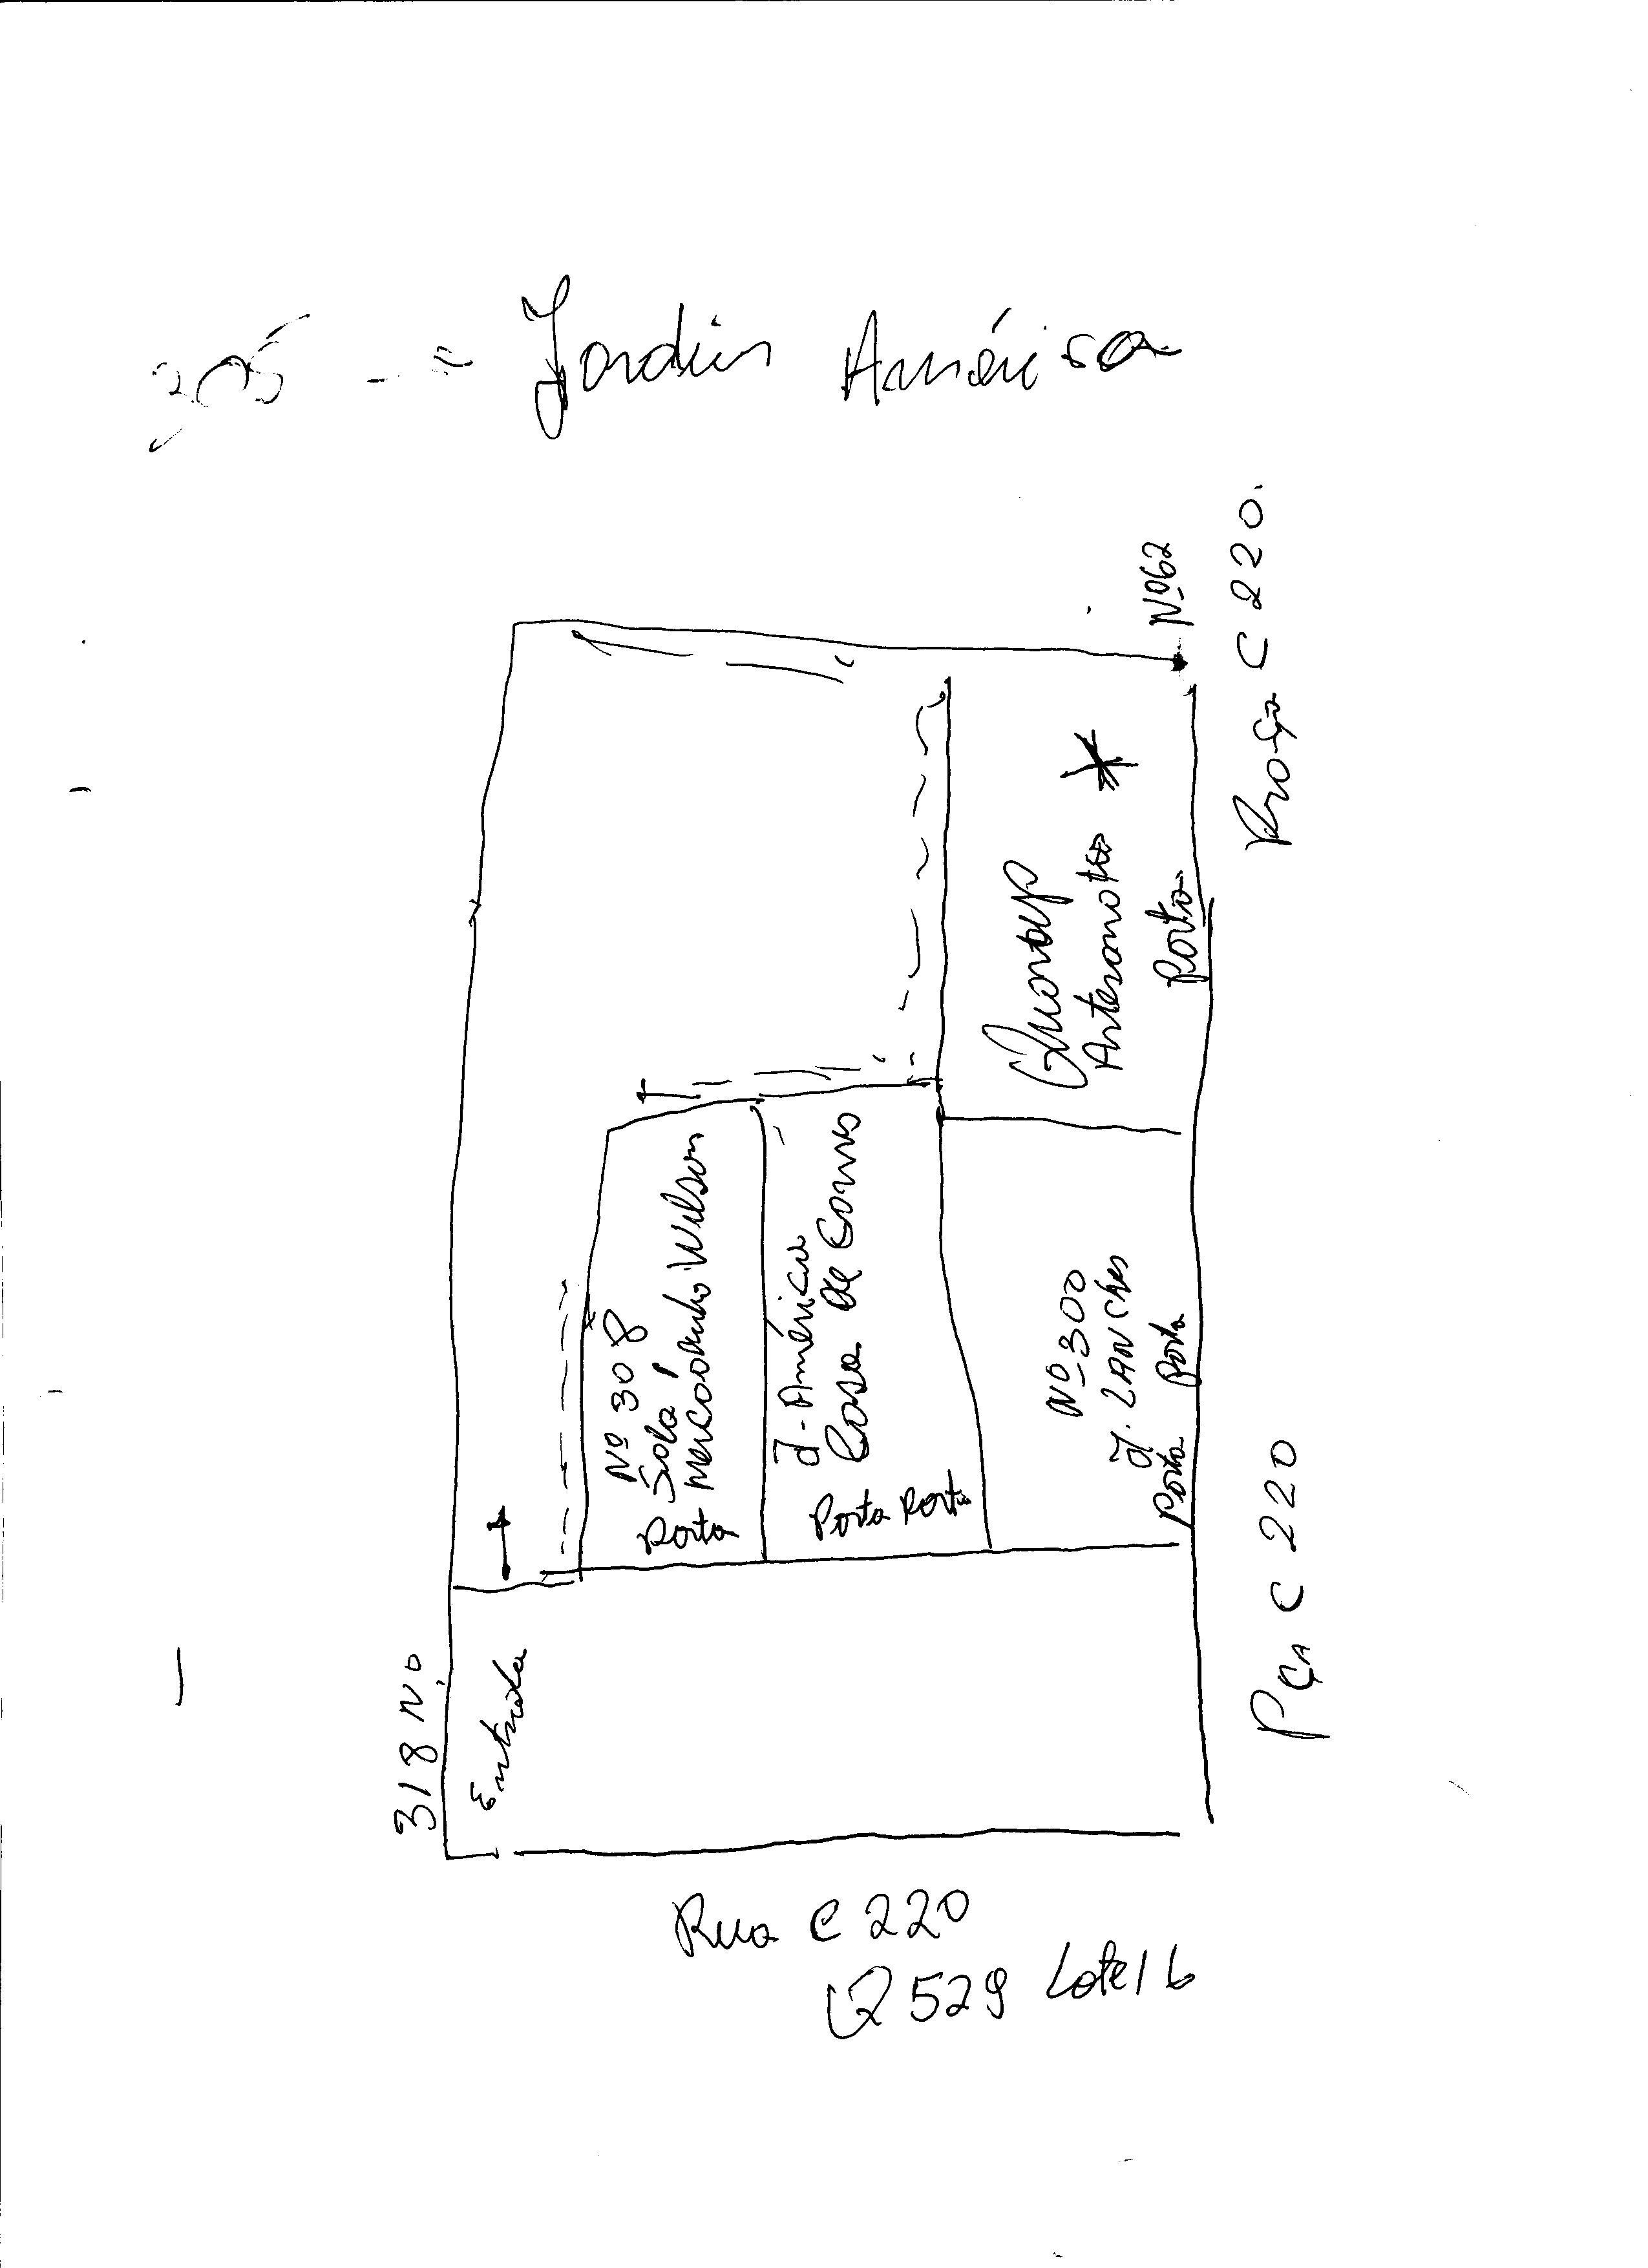 305 - = Jardim América
Nº 62
Praça C 220.
*
Artesanato
Porta
Nº 308
Sala 1
Mercadinho Wilson
Porta
J - América
Casa de Carnes
Porta Porta
Nº 300
J. LANChes
Porta Porta
318 N.º
Entrada
PÇA C 220
Rua C 220
Q 529 Lote 16